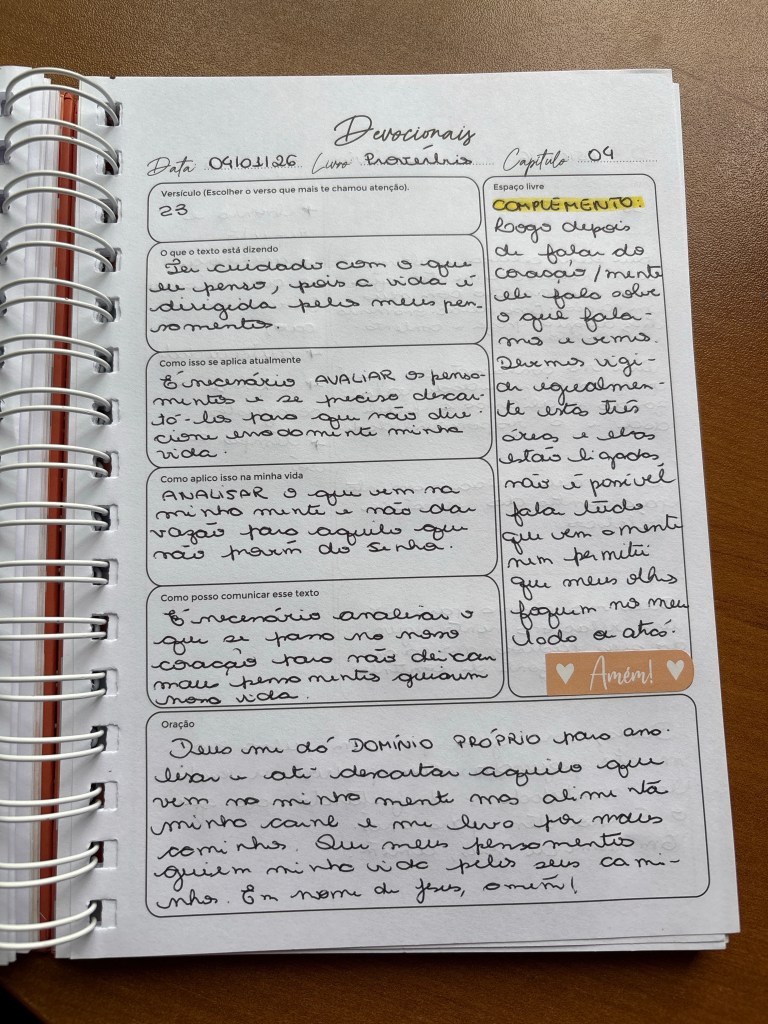 Devocionais
Data 04/01/26 Livro Provérbios Capítulo 04
Versículo (Escolher o verso que mais te chamou atenção).
23
O que o texto está dizendo
Ter cuidado com o que
eu penso, pois a vida é
dirigida pelos meus pen-
samentos.
Como isso se aplica atualmente
É necessário AVALIAR os pensa-
mentos e se preciso descar-
tá-los para que não dire-
cione erradamente minha
vida.
Como aplico isso na minha vida
ANALISAR o que vem na
minha mente e não dar
vazão para aquilo que
não provém do Senhor.
Como posso comunicar esse texto
É necessário analisar o
que se passa no nosso
coração para não deixar
maus pensamentos guiarem
nossa vida.
Espaço livre
COMPLEMENTO:
Logo depois
de falar do
coração/mente
ele fala sobre
o que fala-
mos e vemos.
Devemos vigi-
ar igualmen-
te estas três
áreas e elas
estão ligadas
não é possível
falar tudo
que vem a mente
nem permitir
que meus olhos
foquem no meu
lado ou atrás.
Amém!
Oração
Deus me dá DOMÍNIO PRÓPRIO para ana-
lisar e até descartar aquilo que
vem na minha mente mas alimenta
minha carne e me leva por maus
caminhos. Que meus pensamentos
guiem minha vida pelos seus cami-
nhos. Em nome de Jesus, amém!